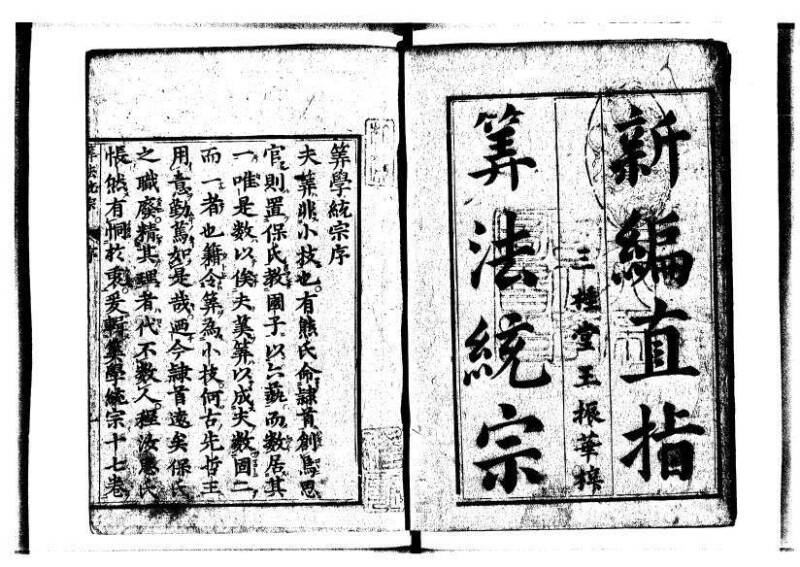 新編直指
三桂堂王振華梓
筭法統宗
筭學統宗序
夫筭非小技也有熊氏命隸首創焉思
官則置保氏教國子以六藝而數居其
一唯是數以俟夫筭筭以成夫數固二
而一者也藉令筭為小技何古先哲王
用意勤篤如是哉迺今隸首遠矣保氏
之職廢精其理者代不數人程汝思氏
悵然有恫於衷爰輯筭學統宗十七卷